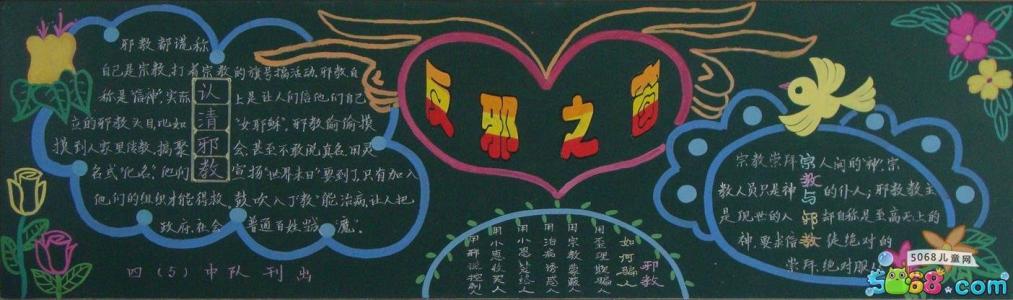 反邪之窗
认清邪教
邪教都谎称
自己是宗教,打着宗教的旗号搞活动,邪教自
称是"信神",实际上是让人们信他们自己
立的邪教头目,比如"女耶稣"。邪教偷偷摸
摸到人家里传教、搞聚会,甚至不敢说真名,用灵
名或"化名"。他们宣扬"世界末日"要到了,只有加入
他们的组织才能得救,鼓吹入了"教"能治病,让人把
政府、社会、普通百姓当"魔"。
四(5)中队刊出
邪教
如何骗人
用歪理欺骗人
用宗教蒙蔽人
用治病诱惑人
用小恩小惠拉人
用邪说控制人
宗教与邪教
宗教崇拜人间的"神",宗
教人员只是神的仆人;邪教教主
是现世的人,却自称是至高无上的
神,要求信徒绝对的
崇拜、绝对服
5068儿童网
5068.com